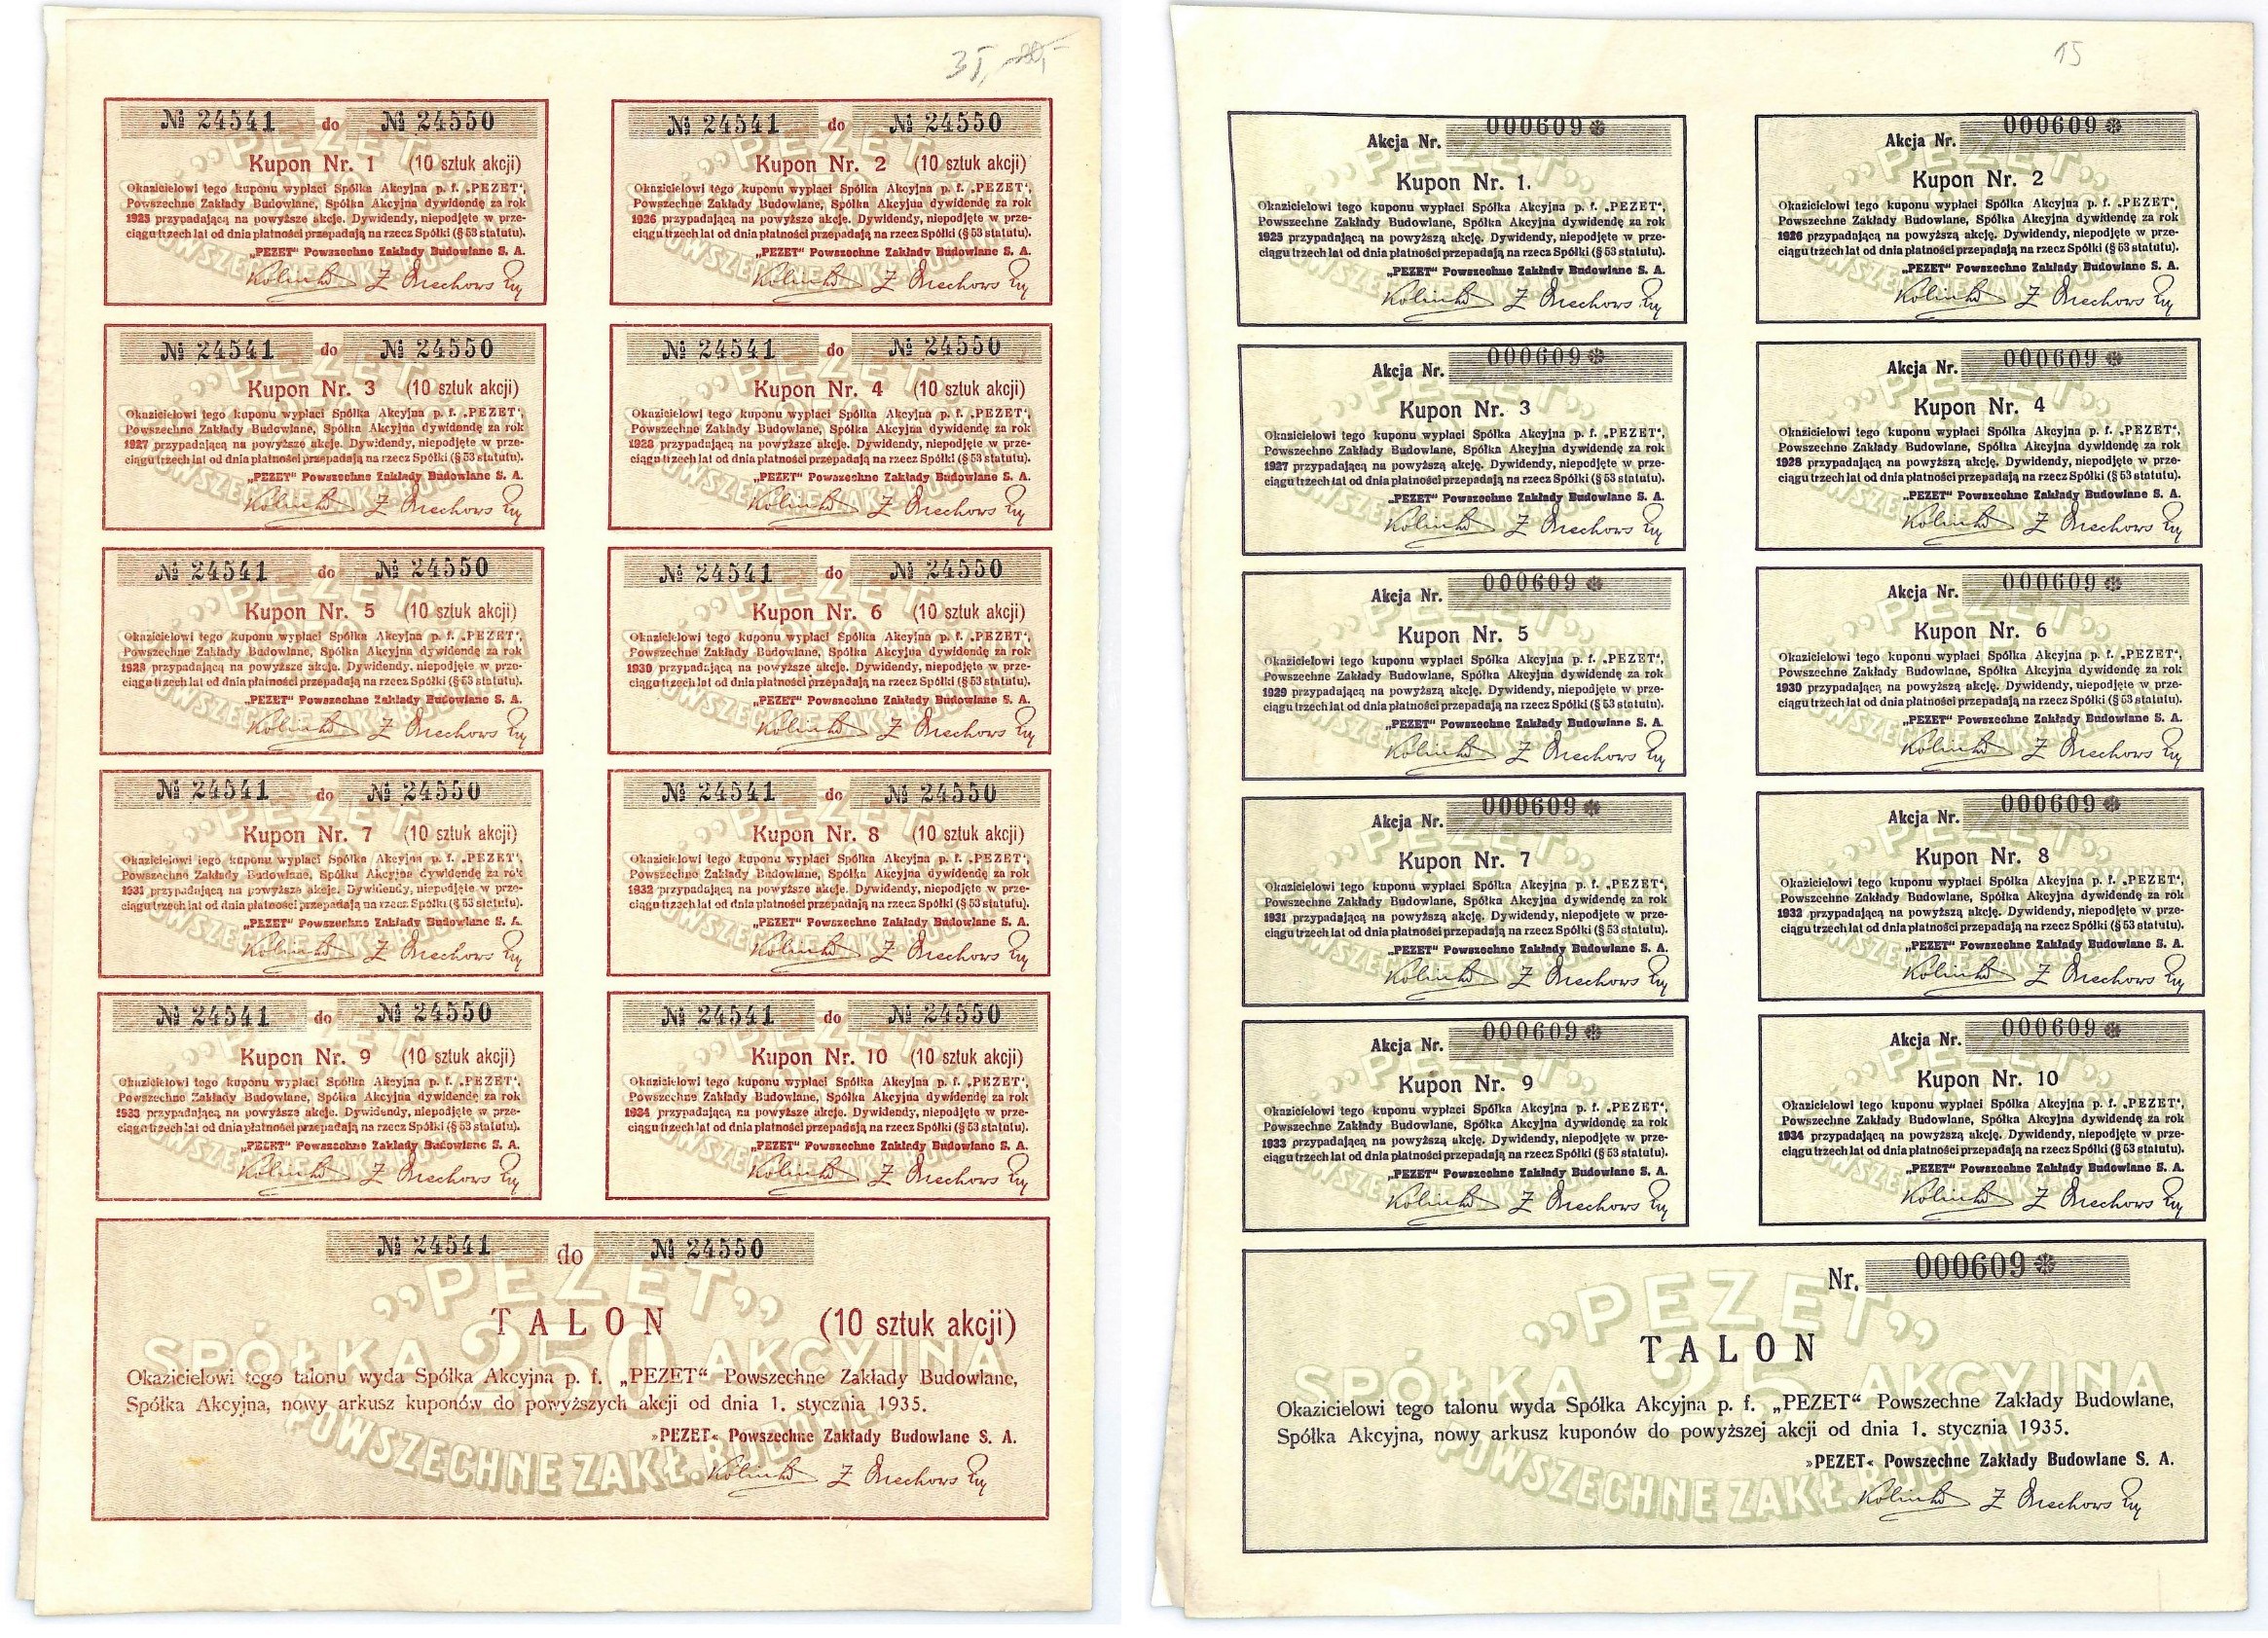 35,-
№ 24541 do № 24550
Kupon Nr. 1 (10 sztuk akcji)
Okazicielowi tego kuponu wypłaci Spółka Akcyjna p. f. „PEZET“,
Powszechne Zakłady Budowlane, Spółka Akcyjna dywidendę za rok
1925 przypadającą na powyższe akcje. Dywidendy, niepodjęte w prze-
ciągu trzech lat od dnia płatności przepadają na rzecz Spółki (§ 53 statutu).
„PEZET“ Powszechne Zakłady Budowlane S. A.
№ 24541 do № 24550
Kupon Nr. 2 (10 sztuk akcji)
Okazicielowi tego kuponu wypłaci Spółka Akcyjna p. f. „PEZET“,
Powszechne Zakłady Budowlane, Spółka Akcyjna dywidendę za rok
1926 przypadającą na powyższe akcje. Dywidendy, niepodjęte w prze-
ciągu trzech lat od dnia płatności przepadają na rzecz Spółki (§ 53 statutu).
„PEZET“ Powszechne Zakłady Budowlane S. A.
№ 24541 do № 24550
Kupon Nr. 3 (10 sztuk akcji)
Okazicielowi tego kuponu wypłaci Spółka Akcyjna p. f. „PEZET“,
Powszechne Zakłady Budowlane, Spółka Akcyjna dywidendę za rok
1927 przypadającą na powyższe akcje. Dywidendy, niepodjęte w prze-
ciągu trzech lat od dnia płatności przepadają na rzecz Spółki (§ 53 statutu).
„PEZET“ Powszechne Zakłady Budowlane S. A.
№ 24541 do № 24550
Kupon Nr. 4 (10 sztuk akcji)
Okazicielowi tego kuponu wypłaci Spółka Akcyjna p. f. „PEZET“,
Powszechne Zakłady Budowlane, Spółka Akcyjna dywidendę za rok
1928 przypadającą na powyższe akcje. Dywidendy, niepodjęte w prze-
ciągu trzech lat od dnia płatności przepadają na rzecz Spółki (§ 53 statutu).
„PEZET“ Powszechne Zakłady Budowlane S. A.
№ 24541 do № 24550
Kupon Nr. 5 (10 sztuk akcji)
Okazicielowi tego kuponu wypłaci Spółka Akcyjna p. f. „PEZET“,
Powszechne Zakłady Budowlane, Spółka Akcyjna dywidendę za rok
1929 przypadającą na powyższe akcje. Dywidendy, niepodjęte w prze-
ciągu trzech lat od dnia płatności przepadają na rzecz Spółki (§ 53 statutu).
„PEZET“ Powszechne Zakłady Budowlane S. A.
№ 24541 do № 24550
Kupon Nr. 6 (10 sztuk akcji)
Okazicielowi tego kuponu wypłaci Spółka Akcyjna p. f. „PEZET“,
Powszechne Zakłady Budowlane, Spółka Akcyjna dywidendę za rok
1930 przypadającą na powyższe akcje. Dywidendy, niepodjęte w prze-
ciągu trzech lat od dnia płatności przepadają na rzecz Spółki (§ 53 statutu).
„PEZET“ Powszechne Zakłady Budowlane S. A.
№ 24541 do № 24550
Kupon Nr. 7 (10 sztuk akcji)
Okazicielowi tego kuponu wypłaci Spółka Akcyjna p. f. „PEZET“,
Powszechne Zakłady Budowlane, Spółka Akcyjna dywidendę za rok
1931 przypadającą na powyższe akcje. Dywidendy, niepodjęte w prze-
ciągu trzech lat od dnia płatności przepadają na rzecz Spółki (§ 53 statutu).
„PEZET“ Powszechne Zakłady Budowlane S. A.
№ 24541 do № 24550
Kupon Nr. 8 (10 sztuk akcji)
Okazicielowi tego kuponu wypłaci Spółka Akcyjna p. f. „PEZET“,
Powszechne Zakłady Budowlane, Spółka Akcyjna dywidendę za rok
1932 przypadającą na powyższe akcje. Dywidendy, niepodjęte w prze-
ciągu trzech lat od dnia płatności przepadają na rzecz Spółki (§ 53 statutu).
„PEZET“ Powszechne Zakłady Budowlane S. A.
№ 24541 do № 24550
Kupon Nr. 9 (10 sztuk akcji)
Okazicielowi tego kuponu wypłaci Spółka Akcyjna p. f. „PEZET“,
Powszechne Zakłady Budowlane, Spółka Akcyjna dywidendę za rok
1933 przypadającą na powyższe akcje. Dywidendy, niepodjęte w prze-
ciągu trzech lat od dnia płatności przepadają na rzecz Spółki (§ 53 statutu).
„PEZET“ Powszechne Zakłady Budowlane S. A.
№ 24541 do № 24550
Kupon Nr. 10 (10 sztuk akcji)
Okazicielowi tego kuponu wypłaci Spółka Akcyjna p. f. „PEZET“,
Powszechne Zakłady Budowlane, Spółka Akcyjna dywidendę za rok
1934 przypadającą na powyższe akcje. Dywidendy, niepodjęte w prze-
ciągu trzech lat od dnia płatności przepadają na rzecz Spółki (§ 53 statutu).
„PEZET“ Powszechne Zakłady Budowlane S. A.
№ 24541 do № 24550
„PEZET„
TALON (10 sztuk akcji)
SPÓŁKA 250 AKCYJNA
Okazicielowi tego talonu wyda Spółka Akcyjna p. f. „PEZET“ Powszechne Zakłady Budowlane,
Spółka Akcyjna, nowy arkusz kuponów do powyższych akcji od dnia 1. stycznia 1935.
»PEZET« Powszechne Zakłady Budowlane S. A.
POWSZECHNE ZAKŁ. BUDOWL.
15
Akcja Nr. 000609
Kupon Nr. 1.
Okazicielowi tego kuponu wypłaci Spółka Akcyjna p. f. „PEZET“,
Powszechne Zakłady Budowlane, Spółka Akcyjna dywidendę za rok
1925 przypadającą na powyższą akcję. Dywidendy, niepodjęte w prze-
ciągu trzech lat od dnia płatności przepadają na rzecz Spółki (§ 53 statutu).
„PEZET“ Powszechne Zakłady Budowlane S. A.
Akcja Nr. 000609
Kupon Nr. 2
Okazicielowi tego kuponu wypłaci Spółka Akcyjna p. f. „PEZET“,
Powszechne Zakłady Budowlane, Spółka Akcyjna dywidendę za rok
1926 przypadającą na powyższą akcję. Dywidendy, niepodjęte w prze-
ciągu trzech lat od dnia płatności przepadają na rzecz Spółki (§ 53 statutu).
„PEZET“ Powszechne Zakłady Budowlane S. A.
Akcja Nr. 000609
Kupon Nr. 3
Okazicielowi tego kuponu wypłaci Spółka Akcyjna p. f. „PEZET“,
Powszechne Zakłady Budowlane, Spółka Akcyjna dywidendę za rok
1927 przypadającą na powyższą akcję. Dywidendy, niepodjęte w prze-
ciągu trzech lat od dnia płatności przepadają na rzecz Spółki (§ 53 statutu).
„PEZET“ Powszechne Zakłady Budowlane S. A.
Akcja Nr. 000609
Kupon Nr. 4
Okazicielowi tego kuponu wypłaci Spółka Akcyjna p. f. „PEZET“,
Powszechne Zakłady Budowlane, Spółka Akcyjna dywidendę za rok
1928 przypadającą na powyższą akcję. Dywidendy, niepodjęte w prze-
ciągu trzech lat od dnia płatności przepadają na rzecz Spółki (§ 53 statutu).
„PEZET“ Powszechne Zakłady Budowlane S. A.
Akcja Nr. 000609
Kupon Nr. 5
Okazicielowi tego kuponu wypłaci Spółka Akcyjna p. f. „PEZET“,
Powszechne Zakłady Budowlane, Spółka Akcyjna dywidendę za rok
1929 przypadającą na powyższą akcję. Dywidendy, niepodjęte w prze-
ciągu trzech lat od dnia płatności przepadają na rzecz Spółki (§ 53 statutu).
„PEZET“ Powszechne Zakłady Budowlane S. A.
Akcja Nr. 000609
Kupon Nr. 6
Okazicielowi tego kuponu wypłaci Spółka Akcyjna p. f. „PEZET“,
Powszechne Zakłady Budowlane, Spółka Akcyjna dywidendę za rok
1930 przypadającą na powyższą akcję. Dywidendy, niepodjęte w prze-
ciągu trzech lat od dnia płatności przepadają na rzecz Spółki (§ 53 statutu).
„PEZET“ Powszechne Zakłady Budowlane S. A.
Akcja Nr. 000609
Kupon Nr. 7
Okazicielowi tego kuponu wypłaci Spółka Akcyjna p. f. „PEZET“,
Powszechne Zakłady Budowlane, Spółka Akcyjna dywidendę za rok
1931 przypadającą na powyższą akcję. Dywidendy, niepodjęte w prze-
ciągu trzech lat od dnia płatności przepadają na rzecz Spółki (§ 53 statutu).
„PEZET“ Powszechne Zakłady Budowlane S. A.
Akcja Nr. 000609
Kupon Nr. 8
Okazicielowi tego kuponu wypłaci Spółka Akcyjna p. f. „PEZET“,
Powszechne Zakłady Budowlane, Spółka Akcyjna dywidendę za rok
1932 przypadającą na powyższą akcję. Dywidendy, niepodjęte w prze-
ciągu trzech lat od dnia płatności przepadają na rzecz Spółki (§ 53 statutu).
„PEZET“ Powszechne Zakłady Budowlane S. A.
Akcja Nr. 000609
Kupon Nr. 9
Okazicielowi tego kuponu wypłaci Spółka Akcyjna p. f. „PEZET“,
Powszechne Zakłady Budowlane, Spółka Akcyjna dywidendę za rok
1933 przypadającą na powyższą akcję. Dywidendy, niepodjęte w prze-
ciągu trzech lat od dnia płatności przepadają na rzecz Spółki (§ 53 statutu).
„PEZET“ Powszechne Zakłady Budowlane S. A.
Akcja Nr. 000609
Kupon Nr. 10
Okazicielowi tego kuponu wypłaci Spółka Akcyjna p. f. „PEZET“,
Powszechne Zakłady Budowlane, Spółka Akcyjna dywidendę za rok
1934 przypadającą na powyższą akcję. Dywidendy, niepodjęte w prze-
ciągu trzech lat od dnia płatności przepadają na rzecz Spółki (§ 53 statutu).
„PEZET“ Powszechne Zakłady Budowlane S. A.
Nr. 000609
„PEZET„
TALON
SPÓŁKA 25 AKCYJNA
Okazicielowi tego talonu wyda Spółka Akcyjna p. f. „PEZET“ Powszechne Zakłady Budowlane,
Spółka Akcyjna, nowy arkusz kuponów do powyższej akcji od dnia 1. stycznia 1935.
»PEZET« Powszechne Zakłady Budowlane S. A.
POWSZECHNE ZAKŁ. BUDOWL.